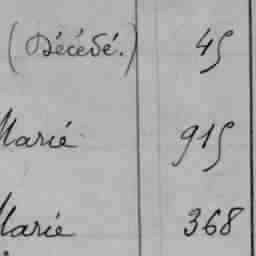 (Décédé.) 45
Marié 915
Marié 368